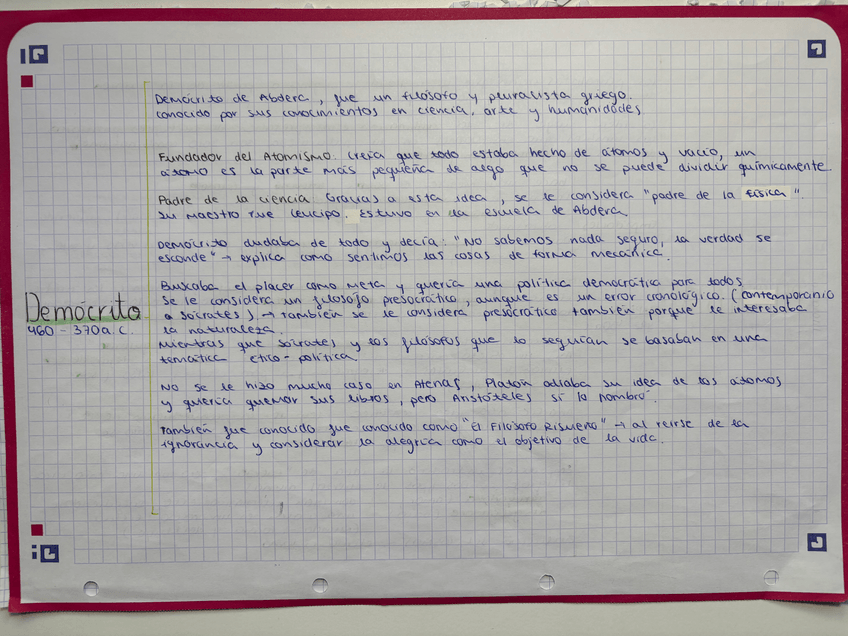 Demócrito de Abdera, fue un filósofo y pluralista griego.
conocido por sus conocimientos en ciencia, arte y humanidades
Fundador del Atomismo. Creía que todo estaba hecho de átomos y vacío, un
átomo es la parte más pequeña de algo que no se puede dividir químicamente.
Padre de la ciencia Gracias a esta idea, se le considera "padre de la física".
Su maestro fue Leucipo. Estuvo en la escuela de Abdera
Demócrito dudaba de todo y decía: "No sabemos nada seguro, la verdad se
esconde" → explica como sentimos las cosas de forma mecánica.
Buscaba el placer como meta y quería una política democrática para todos
Se le considera un filósofo presocrático, aunque es un error cronológico. (contemporanio
a sócrates) → también se le considera presocrático también porque le interesaba
la naturaleza.
Mientras que Sócrates y los filósofos que lo seguían se basaban en una
temática ético-política.
Demócrito
460 - 370 a.c.
No se le hizo mucho caso en Atenas, Platón odiaba su idea de los átomos
y quería quemar sus libros, pero Aristóteles sí lo nombró.
También fue conocido fue conocido como "El Filósofo Risueño" → al reirse de la
ignorancia y considerar la alegría como el objetivo de la vida.